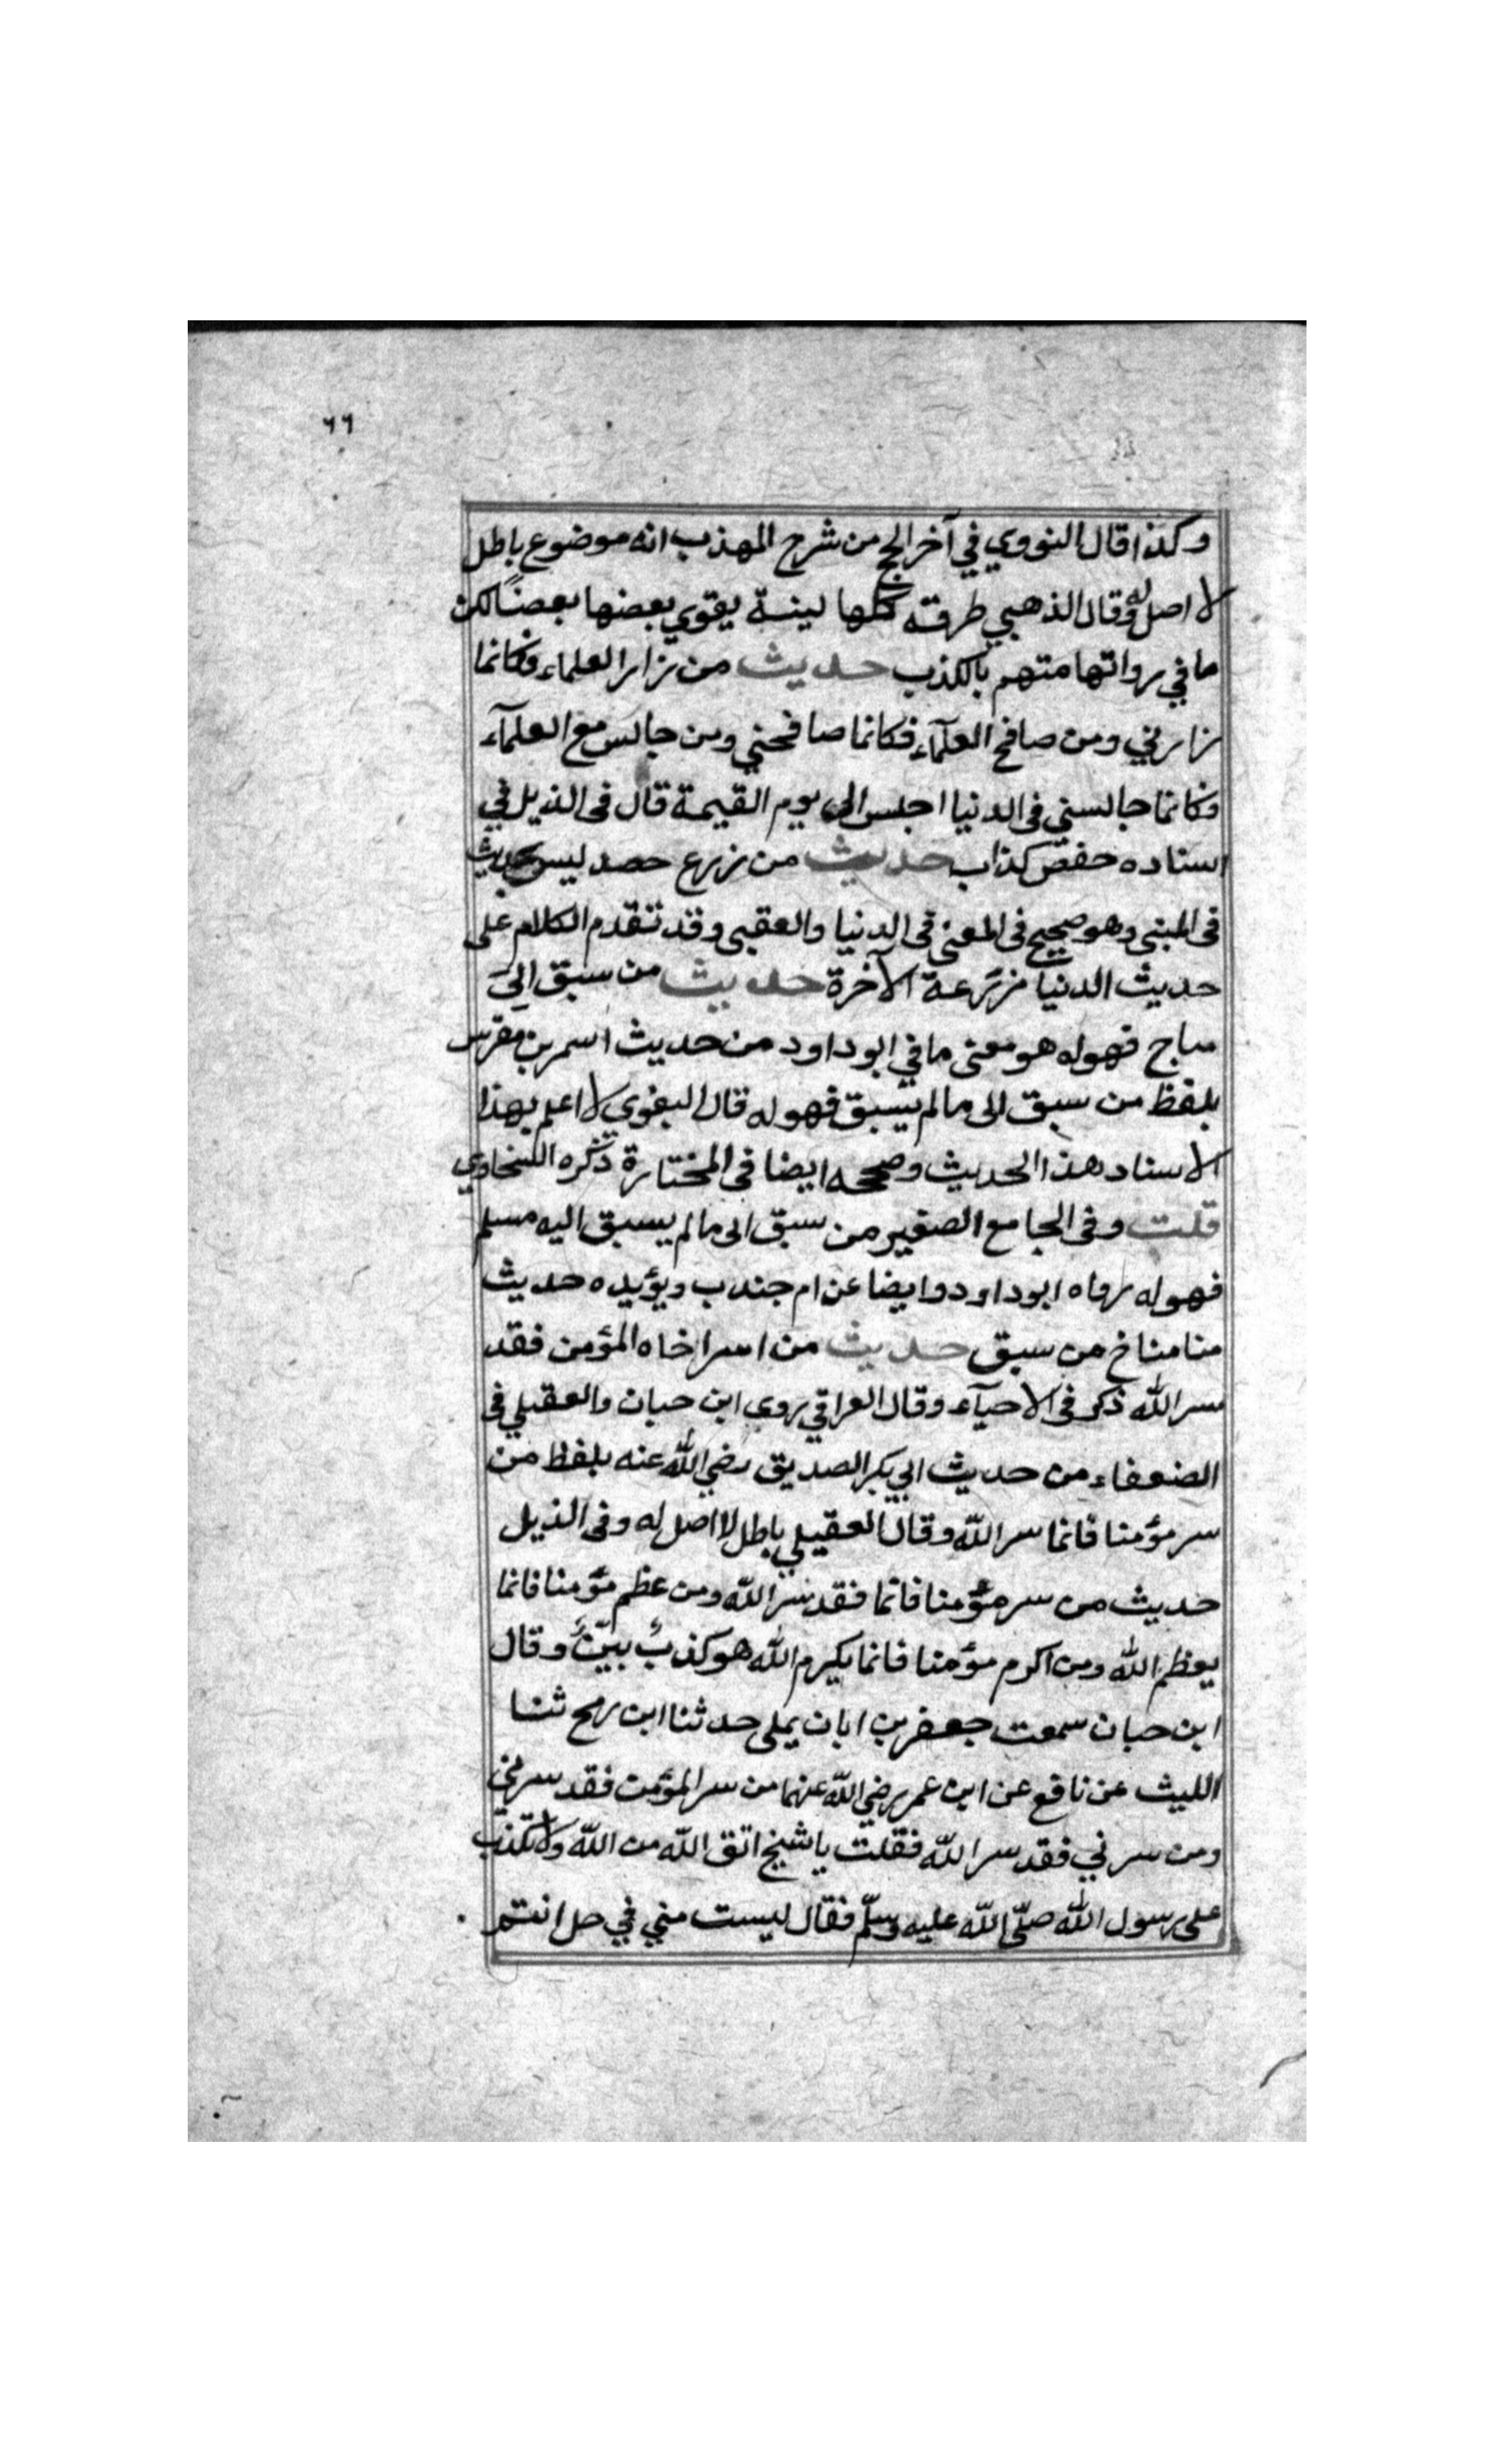 ٦٦
وكذا قال النووي في آخر الحج من شرح المهذب انه موضوع باطل
لا اصل له وقال الذهبي طرقه كلها لينة يقوي بعضها بعضًا لكن
ما في رواتها متهم بالكذب حديث من زار العلماء فكانما
زارني ومن صافح العلمآء فكانما صافحني ومن جالس مع العلمآء
فكانما جالسني فى الدنيا اجلس الى يوم القيمة قال فى الذيل في
اسناده حفص كذاب حديث من زرع حصد ليس بحديث
فى المبنى وهو صحيح فى المعنى فى الدنيا والعقبى وقد تقدم الكلام على
حديث الدنيا مزرعة الآخرة حديث من سبق الىَ
مباح فهو له هو معنى ما في ابو داود من حديث اسمر بن مضرس
بلفظ من سبق الى ما لم يسبق فهو له قال البغوي لا اعلم بهذا
الاسناد هذا الحديث وصححه ايضا فى المختارة ذكره السخاوي
قلت وفى الجامع الصغير من سبق الى ما لم يسبق اليه مسلم
فهو له رواه ابو داود وايضا عن ام جندب ويؤيده حديث
منا مناخ من سبق حديث من اسر اخاه المؤمن فقد
سر الله ذكر فى الاحيآء وقال العراقي روى ابن حبان والعقيلي فى
الضعفاء من حديث ابي بكر الصديق رضي الله عنه بلفظ من
سر مؤمنا فانما سر الله وقال العقيلي باطل لا اصل له وفى الذيل
حديث من سر مؤمنا فانما فقد سر الله ومن عظم مؤمنا فانما
يعظم الله ومن اكرم مؤمنا فانما يكرم الله هو كذبٌ بيّنٌ وقال
ابن حبان سمعت جعفر بن ابان يملى حدثنا ابن رمح ثنا
الليث عن نافع عن ابن عمر رضي الله عنهما من سر المؤمن فقد سرني
ومن سرني فقد سر الله فقلت يا شيخ اتق الله من الله ولا تكذب
على رسول الله صلّى الله عليه وسلّم فقال ليست مني في حل انتم